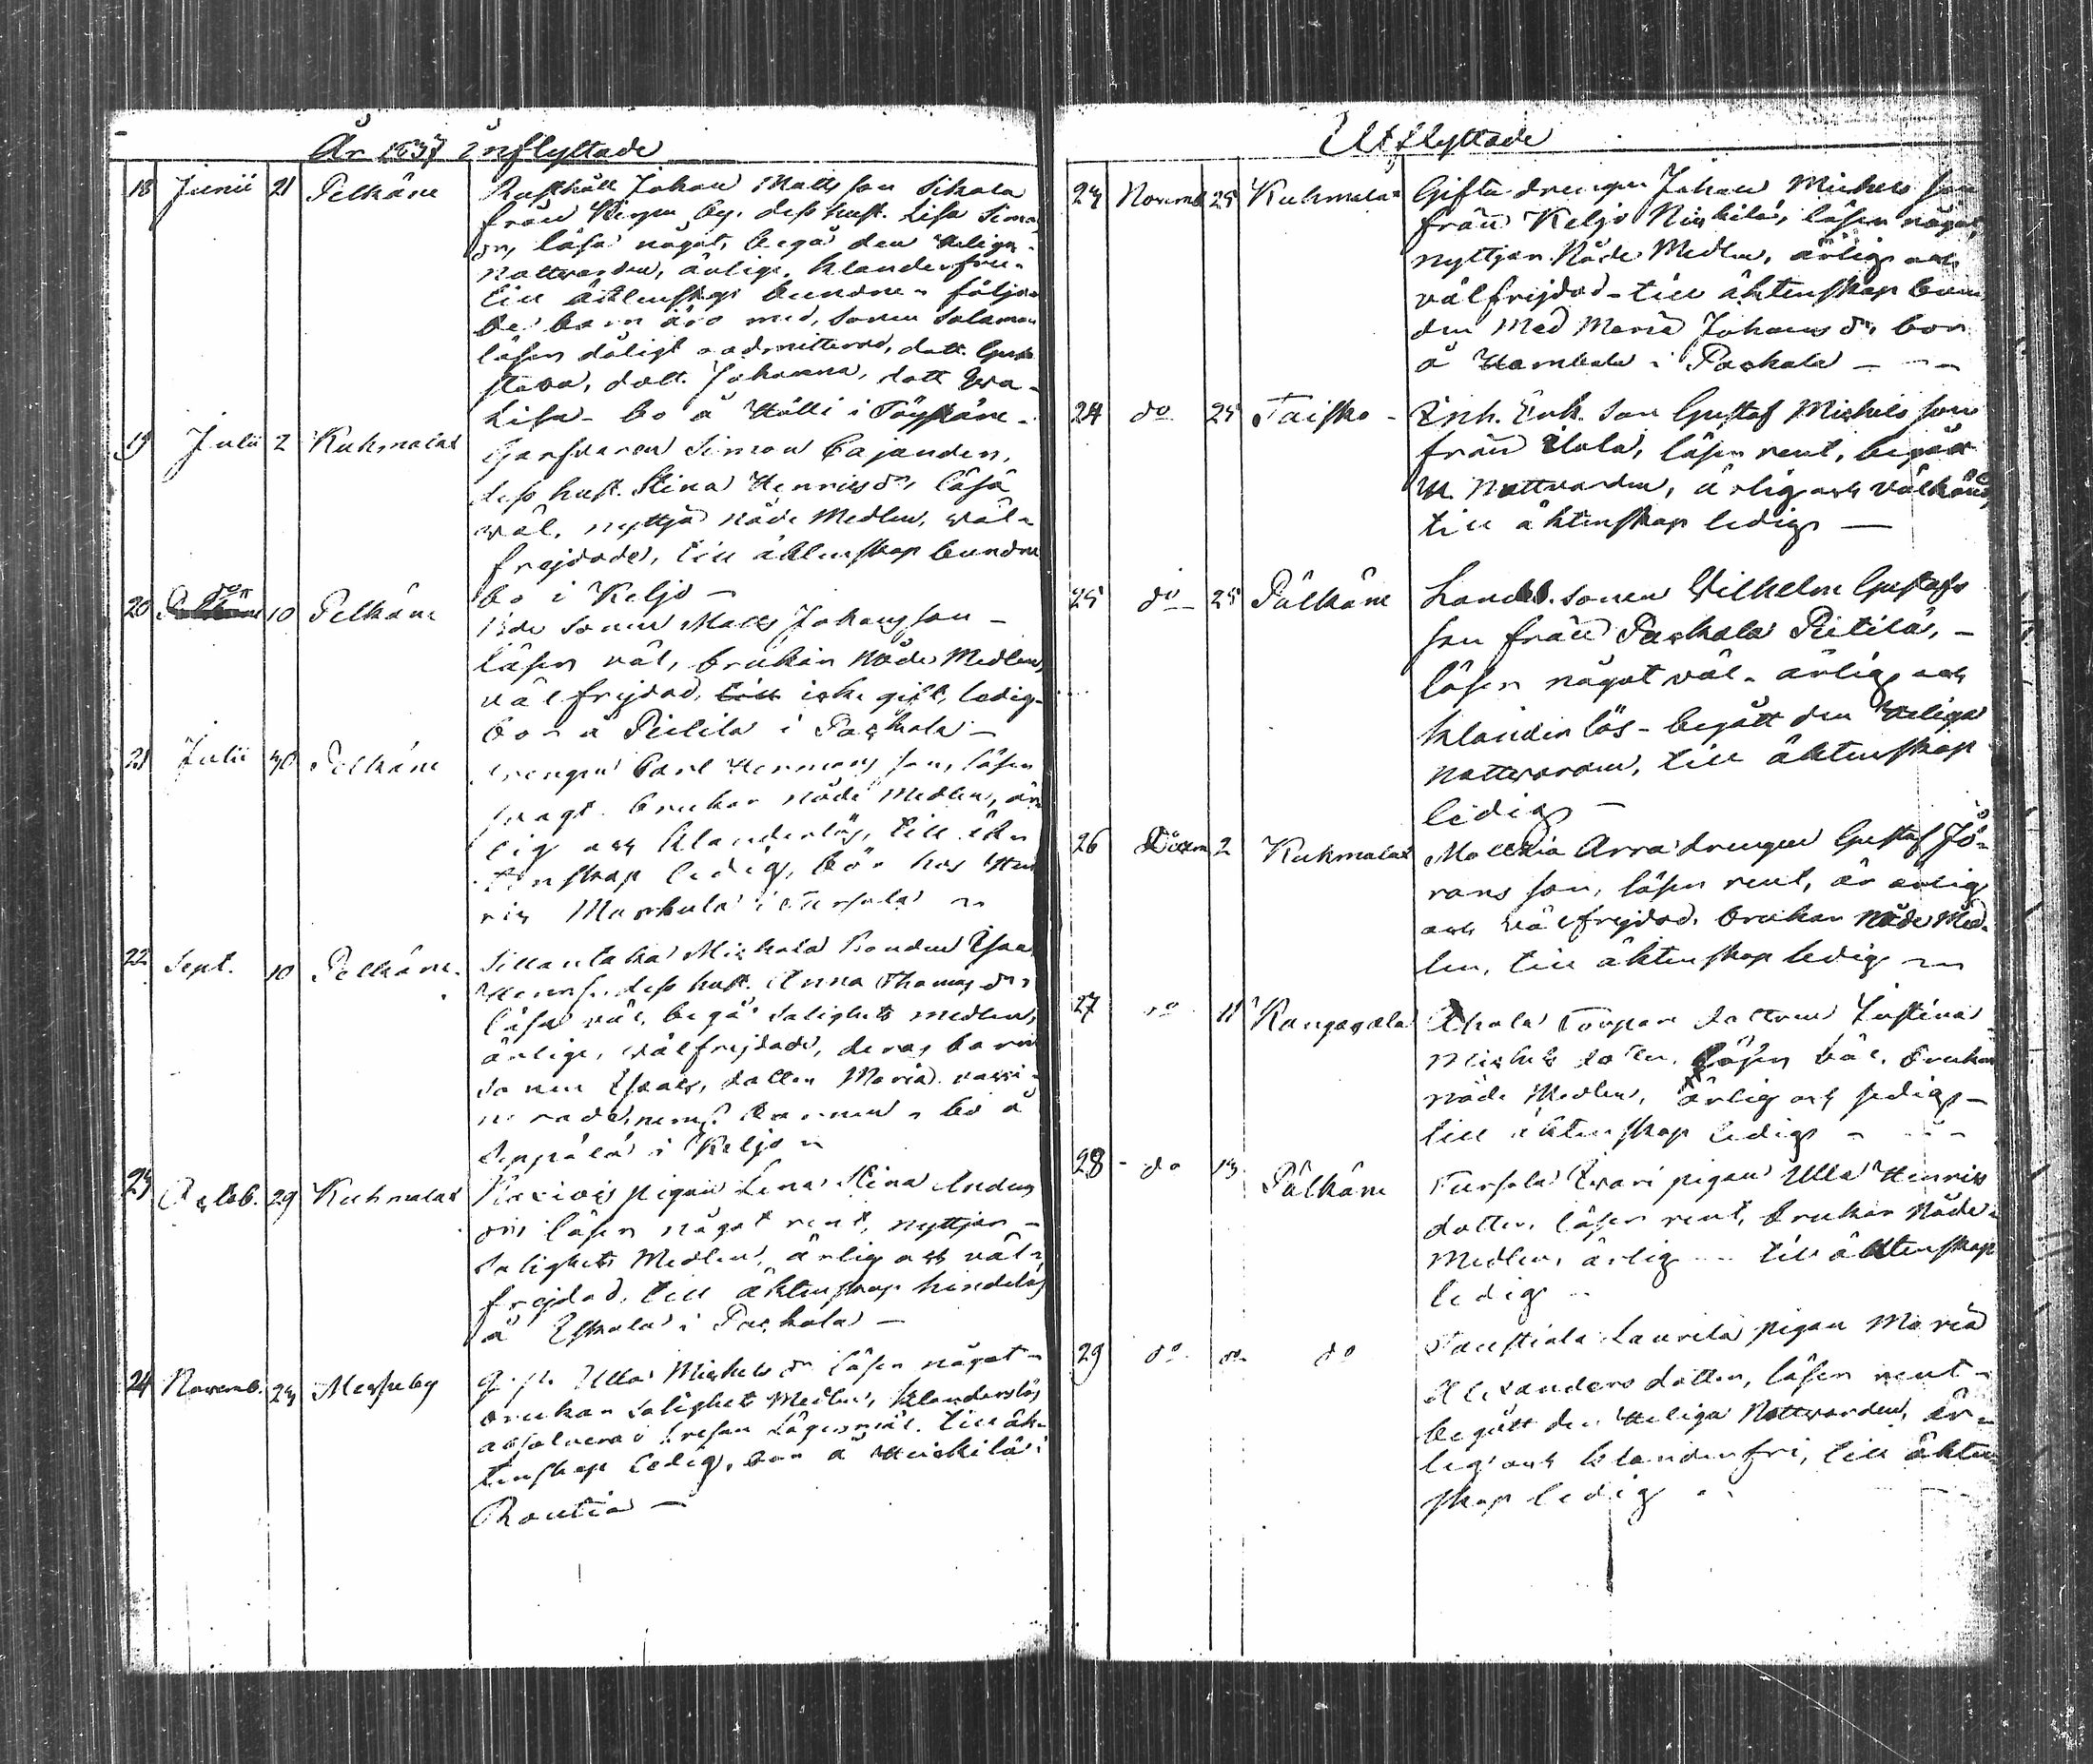 År 1837 Inflyttade
18 Junii 21 Pelkäne Rusthåll Johan Matts son Sikala
från by. dess hust. Lisa Simons
dr, läsa något, begå den Heliga
Nattvarden, ärlige, klanderfrie
till äktenskap bundne - följan
de barn äro med, sonen Salomon
läser dåligt admitterad, dott. Gus
stava, dott. Johanna, dott Eva
Lisa - bo å Hålli i
19 Julii 2 Kuhmalax Garfvaren Simon Cajanden,
dess hust. Stina Henricsdr, läsa
väl, nyttja Nåde Medlen, väl-
frejdade, till äktenskap bundne
bo i Keljo -
20 do 10 Pelkäne sonen Matts Johansson -
läser väl, brukar Nåde Medlen,
välfrejdad, till icke gift, ledig
bor å Pietilä i Packala -
21 Julii 30 Pelkäne drengen Carl Hermans son, läser
svagt. brukar Nåde Medlen, är
lig och klanderlös, till äk
tenskap ledig, bor hos Hen
ric i Tursola
22 Sept. 10 Pelkäne Sillantaka Mickola Bonden Isaac
dess hust. Anna Thomas dr
läsa väl, begå Salighets medlen,
ärlige, välfrejdade, deras barn
sonen Isaac, dottren Maria vacci-
nerade, bo å
Seppälä i Keljo
23 Octob. 29 Kuhmalax pigan Lena Stina Anders
dr läser något rent, nyttjar -
Salighets Medlen, ärlig och väl-
frejdad, till äktenskap hinderlös
å Eskola i Packala -
24 Novemb. 23 Messuby Ulla Michels dr läser något -
brukar Salighets Medlen, klanderslös
absolverad Lägersmål. till äk-
tenskap ledig, bor å Heickilä i
Rautia -
Utflyttade
23 Novemb 25 Kuhmalax Gifta drengen Johan Michels son
från Keljo Nickilä, läser något,
nyttjar Nåde Medlen, ärlig och
välfrejdad - till äktenskap bun
den med Maria Johans dr, bor
å i Packala - - -
24 do 25 Taisko - Inh. Enk. son Gustaf Michels son
från Isola, läser rent, begår
H. Nattvarden, ärlig och välkänd,
till äktenskap ledig -
25 do 25 Pälkäne sonen Wilhelm Gustafs
son från Packala Pietilä, -
läser något väl - ärlig och
klanderlös - begått den Heliga
Nattvarden, till äktenskap
ledig -
26 Decem 2 Kuhmalax Arra drengen Gustaf Jö-
rans son, läser rent, är ärlig
och välfrejdad, brukar Nåde Med-
len, till äktenskap ledig
27 do 11 Kangasala Torpare dottren Justina
Michels dotter, läser väl, brukar
Nåde Medlen, ärlig och sedig -
till äktenskap ledig - - -
28 - do 13 Pälkäne Tursola pigan Ulla Henrics
dotter, läser rent, brukar Nåde-
Medlen, ärlig - - till äktenskap
ledig -
29 do do do Laurila pigan Maria
Alexanders dotter, läser rent -
begått den Heliga Nattvarden, är-
lig och klanderfri, till äkten
skap ledig -